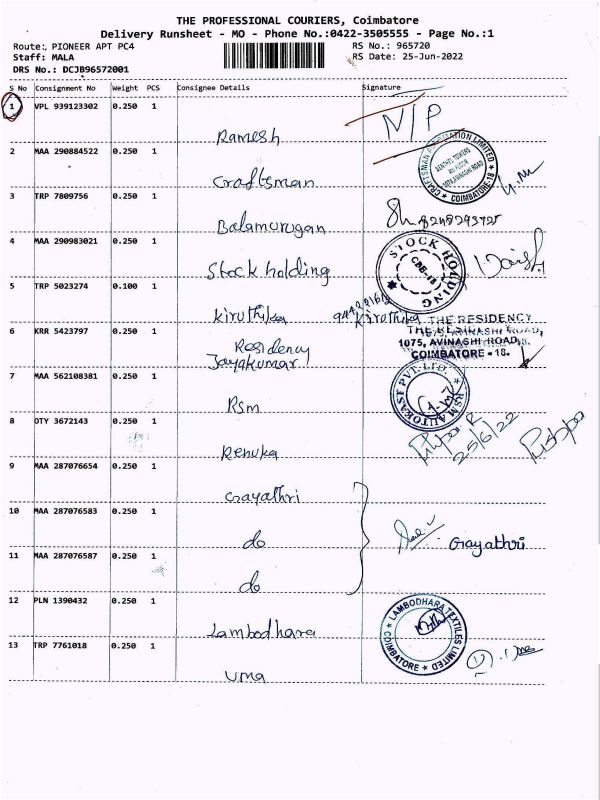 THE PROFESSIONAL COURIERS, Coimbatore
Delivery Runsheet - MO - Phone No.:0422-3505555 - Page No.:1
Route: PIONEER APT PC4 RS No.: 965720
Staff: MALA RS Date: 25-Jun-2022
DRS No.: DCJB96572001
S No Consignment No Weight PCS Consignee Details Signature
1 VPL 939123302 0.250 1 Ramesh N/P
2 MAA 290884522 0.250 1 Craftsman
CRAFTSMAN AUTOMATION LIMITED
SENTHEL TOWERS
COIMBATORE-18
3 TRP 7809756 0.250 1 Balamurugan
4 MAA 290983021 0.250 1 Stock holding
STOCK HOLDING
CBE-18
5 TRP 5023274 0.100 1 Kiruthika Kiruthika
6 KRR 5423797 0.250 1 Residency Jayakumar
THE RESIDENCY
1075, AVINASHI ROAD,
COIMBATORE - 18.
7 MAA 562108381 0.250 1 RSM
RSM AUTOKAST PVT. LTD.
8 DTY 3672143 0.250 1 Renuka
25/6/22 Pushpa
9 MAA 287076654 0.250 1 Gayathri
10 MAA 287076583 0.250 1 do Gayathri
11 MAA 287076587 0.250 1 do
12 PLN 1390432 0.250 1 Lambodhara
LAMBODHARA TEXTILES LIMITED
COIMBATORE
13 TRP 7761018 0.250 1 Uma